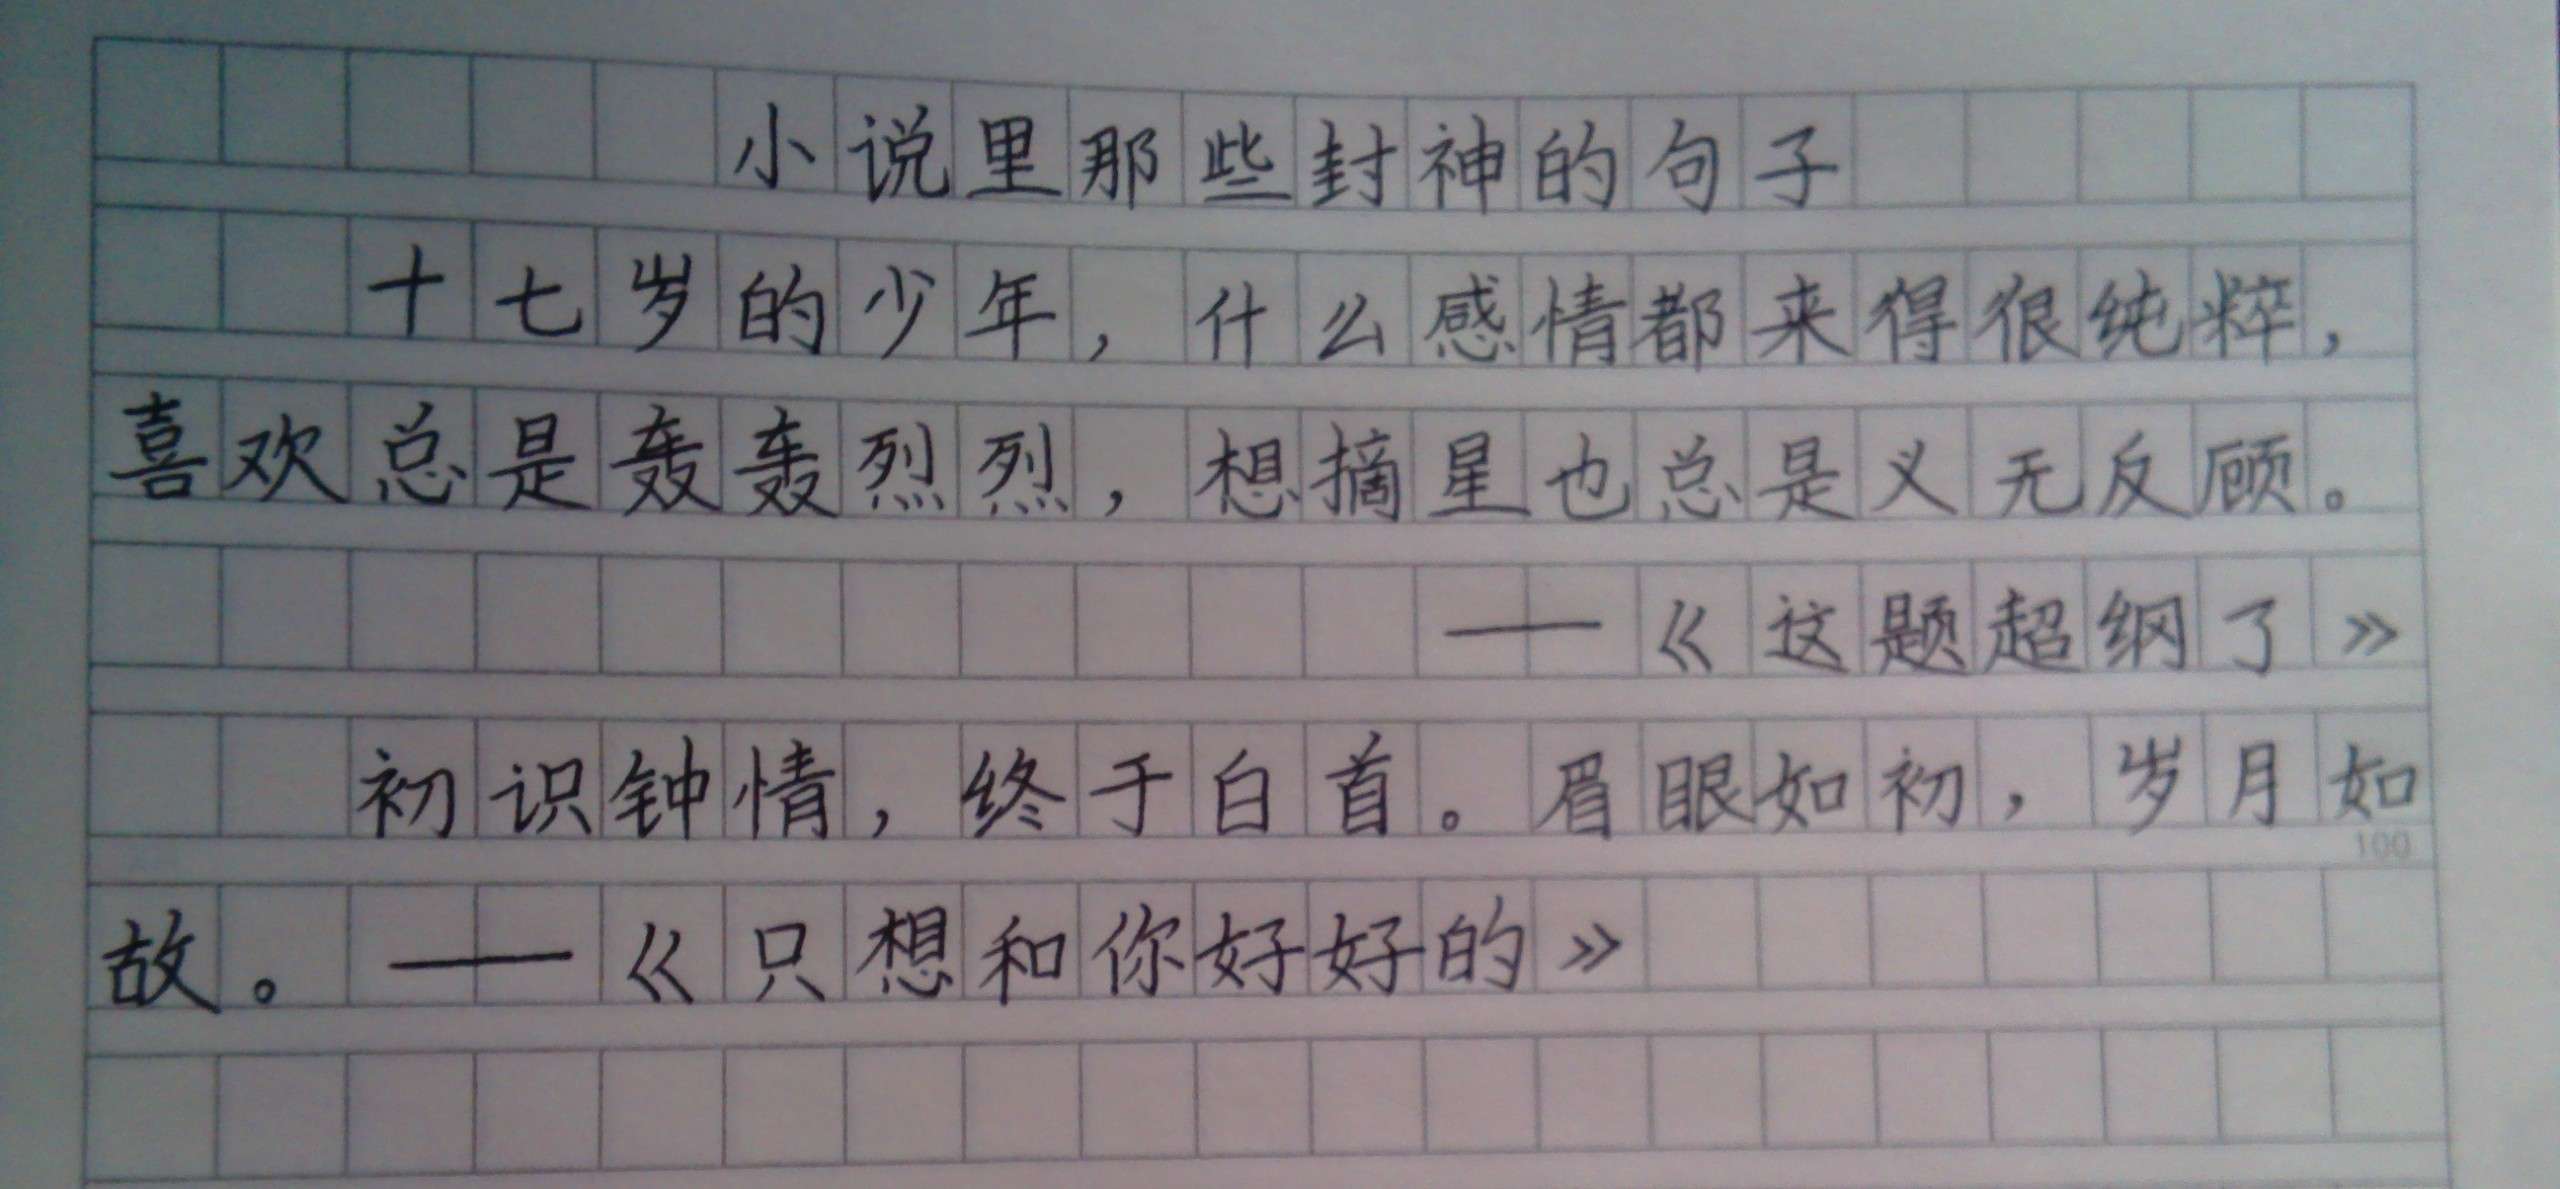 小说里那些封神的句子
十七岁的少年，什么感情都来得很纯粹，
喜欢总是轰轰烈烈，想摘星也总是义无反顾。
——《这题超纲了》
初识钟情，终于白首。眉眼如初，岁月如
100
故。——《只想和你好好的》